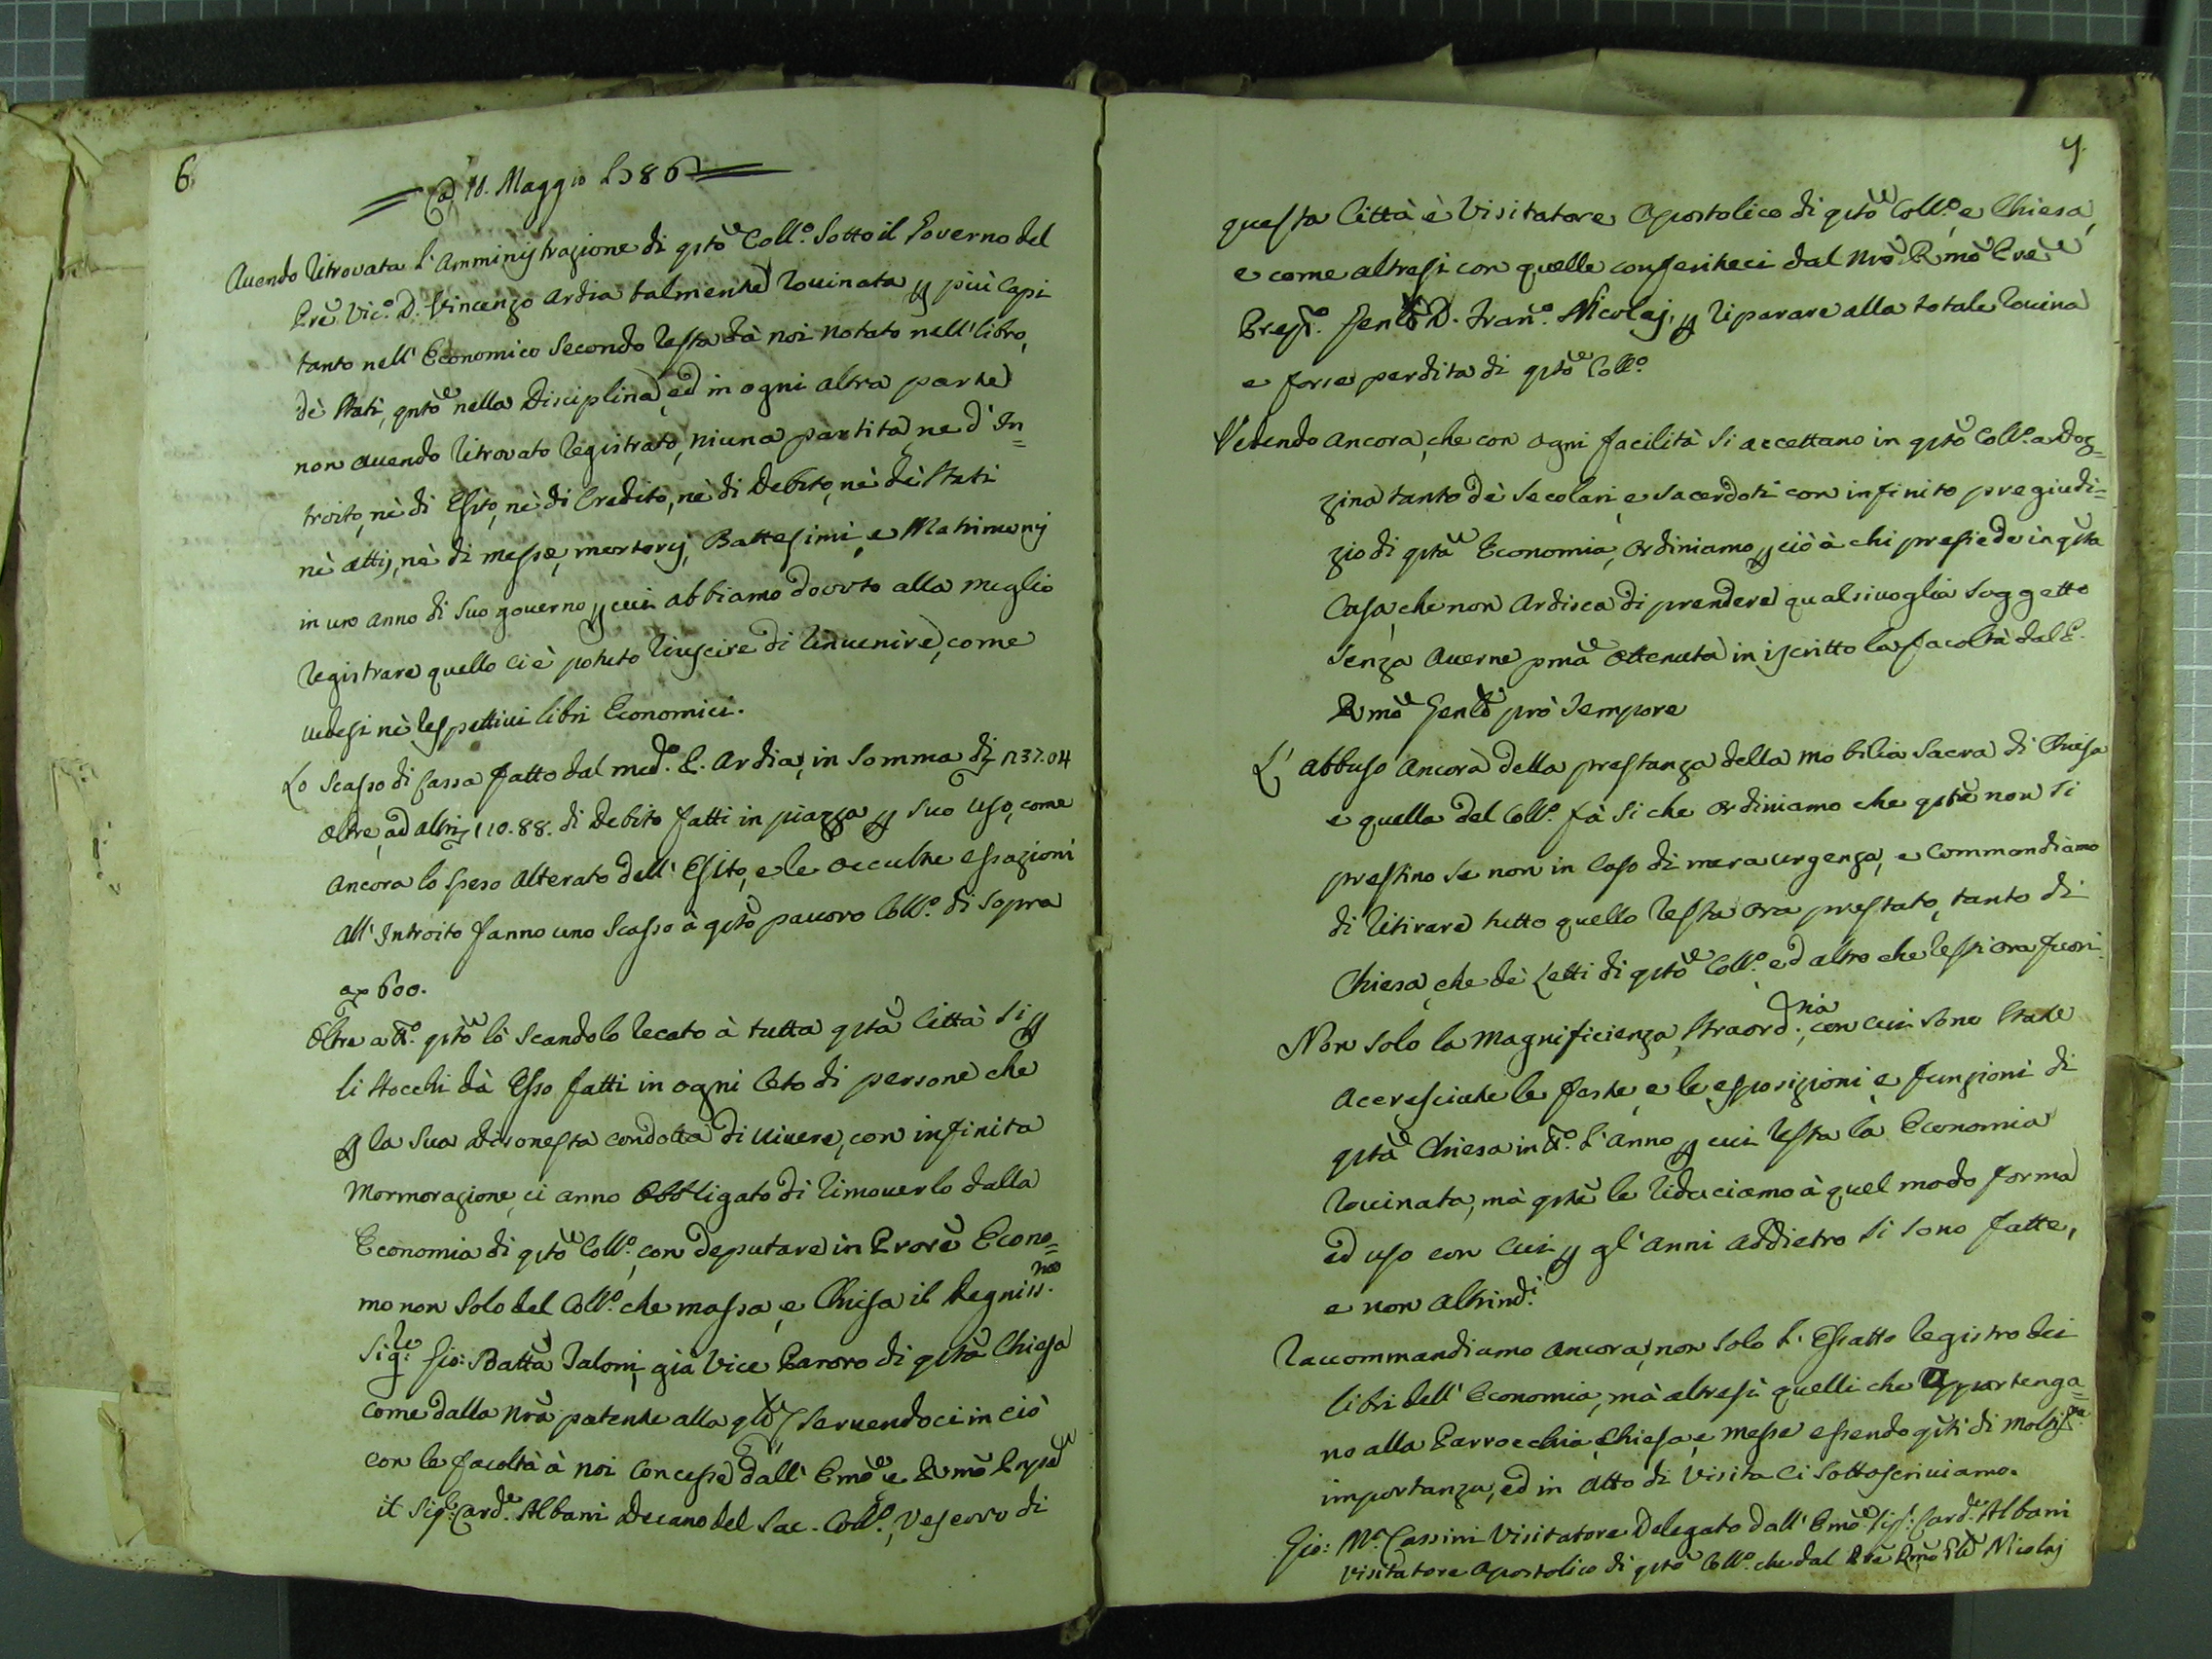 6.
Adì 18. Maggio 1786
Auendo ritrovata l'Amministrazione di qsto Coll.º Sotto il Governo del
Pre Vic.º D. Vincenzo Ardia talmente rouinata p più Capi
tanto nell'Economico Secondo resta dà noi notato nell'libro
dè Stati, qnto nella Disciplina, ed in ogni altra parte
non auendo ritrovato registrato, niuna partita ne d'In=
troito, nè di Esito, nè di Credito, nè di Debito, nè dè Stati
nè attij, nè di messe, mortorij, Battesimi, e Matrimonj
in uno anno di Suo gouerno, p cui abbiamo dovuto alla meglio
registrare quello ci è potuto riuscire di rinuenire, come
uedesi nè respettiui libri Economici.
Lo Scasso di Cassa fatto dal med.º P. Ardia, in Somma di 1237.04
oltre, ad altri 110.88. di Debito fatti in piazza p suo uso, come
ancora lo Speso alterato dell'Esito, e le occulte essazioni
all'Introito fanno uno Scasso à qsto pauoro Coll.º di Sopra
a 600.
Oltre a tt.º qsto lò Scandolo recato à tutta qsta Città Si p
li Stocchi dà Esso fatti in ogni Ceto di persone che
p la Sua Disonesta condotta di uiuere, con infinita
Mormorazione, ci anno Obbligato di rimouerlo dalla
Economia di qsto Coll.º, con deputare in Prore Econo=
mo non Solo del Coll.º che massa, e Chiesa il Degniss.mo
Sig.re Gio: Batta Taloni, già Vice Parroco di qsta Chiesa
Come dalla Nra patente alla qle Seruendoci in ciò
con le facoltà à noi Concesse dall'Emo e Rmo Prpe
il Sig.r Card.e Albani Decano del Sac. Coll.º, Vescovo di
7.
questa Città è Visitatore Apostolico di qsto Coll.º, e Chiesa,
e come altresi con quelle conferiteci dal Nro Rmo Pre
Prep.º Genle D. Fran.º Nicolaj, p riparare alla totale rouina
e forse perdita di qsto Coll.º
Vedendo ancora, che con ogni facilità Si accettano in qsto Coll.º a doz=
zina tanto dè Secolari, e Sacerdoti con infinito pregiudi=
zio di qsta Economia, ordiniamo p ciò à chi presiede in qsta
Casa, che non ardisca di prendere qualsiuoglia Soggetto
Senza auerne pma ottenuta in iscritto la facoltà dal P.
Rmo Genle prò tempore
L'abbuso ancora della prestanza della mobilia Sacra di Chiesa
e quella del Coll.º fà Si che ordiniamo che qste non Si
prestino Se non in Caso di mera urgenza, e Commandiamo
di ritirare tutto quello resta ora prestato, tanto di
Chiesa, che dè Letti di qsto Coll.º, ed altro che resti ora fuori.
Non Solo la Magnificienza Straord.nia, con cui Sono State
accresciute le feste, e le esposizioni, e funzioni di
qsta Chiesa in tt.º l'anno, p cui resta la Economia
rouinata, mà qste le riduciamo à quel modo forma
ed uso con Cui p gl'anni addietro Si Sono fatte,
e non altrind.i
Raccommandiamo ancora, non Solo l'Essatto registro dei
libri dell'Economia, mà altresì quelli che appartenga=
no alla Parrocchia, Chiesa, e messe essendo qsti di moltiss.ma
importanza, ed in atto di Visita Ci Sottoscriuiamo.
Gio: M.ª Cassini Visitatore Delegato dall'Emo Sig.r Card.e Albani
Visitatore Apostolico di qsto Coll.º che dal Pre Rmo Genle Nicolaj